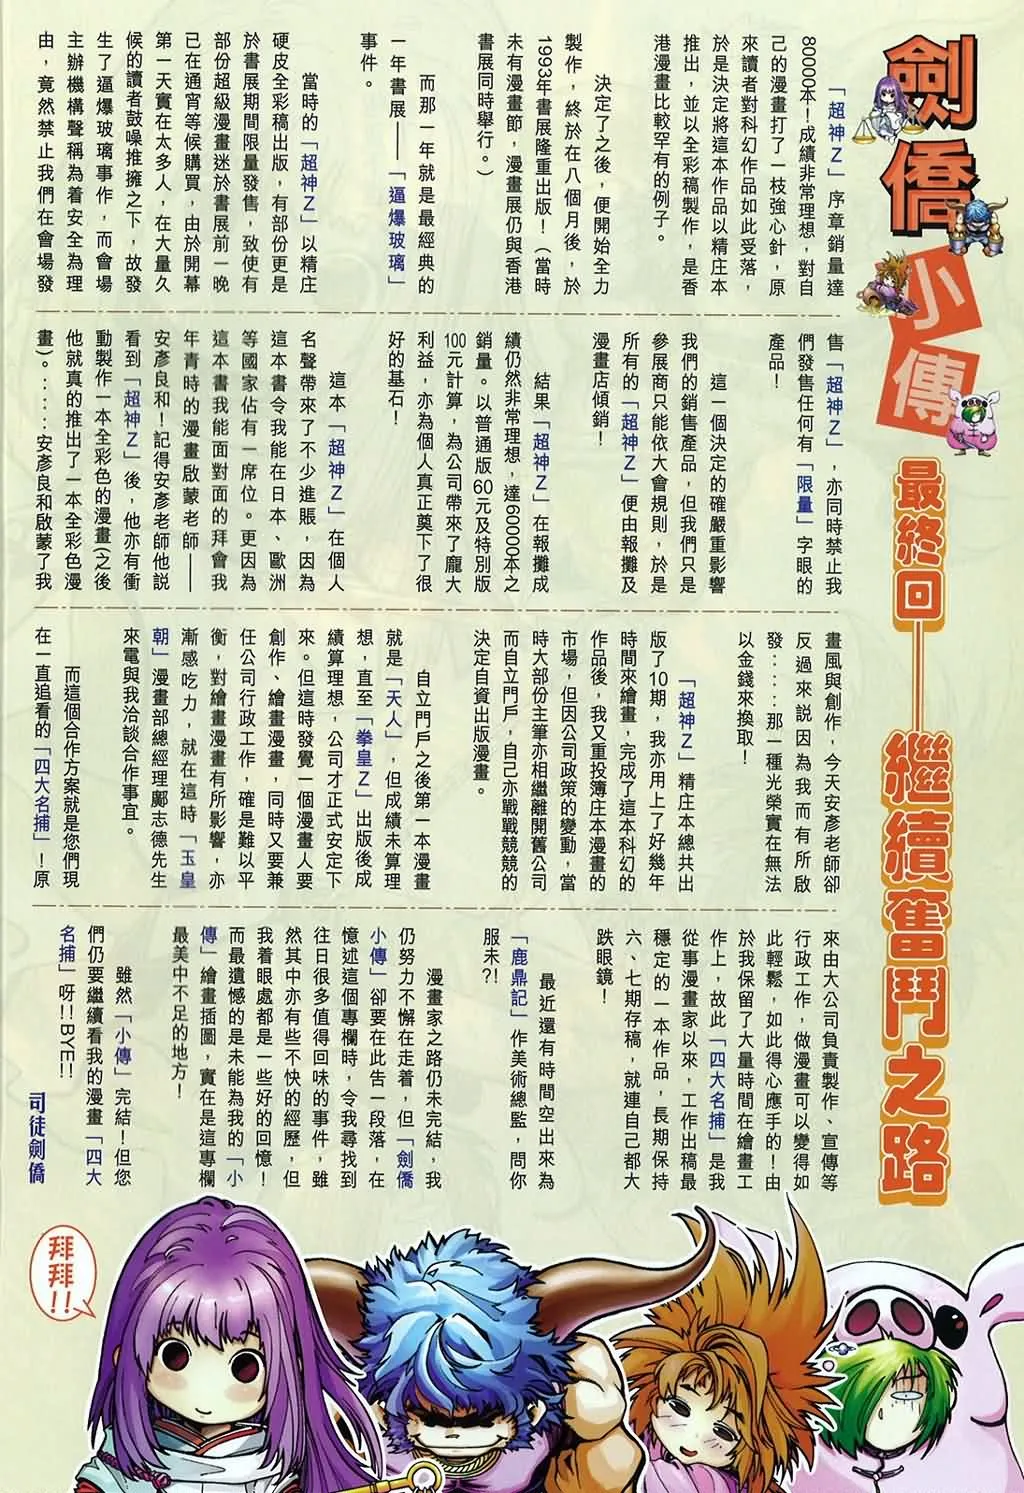 劍僑
小傳
最終回——繼續奮鬥之路
「超神Z」序章銷量達
80000本！成績非常理想，對自
己的漫畫打了一枝強心針，原
來讀者對科幻作品如此受落，
於是決定將這本作品以精庄本
推出，並以全彩稿製作，是香
港漫畫比較罕有的例子。
決定了之後，便開始全力
製作，終於在八個月後，於
1993年書展隆重出版！（當時
未有漫畫節，漫畫展仍與香港
書展同時舉行。）
而那一年就是最經典的
一年書展——「逼爆玻璃」
事件。
當時的「超神Z」以精庄
硬皮全彩稿出版，有部份更是
於書展期間限量發售，致使有
部份超級漫畫迷於書展前一晚
已在通宵等候購買，由於開幕
第一天實在太多人，在大量久
候的讀者鼓噪推擁之下，故發
生了逼爆玻璃事作，而會場
主辦機構聲稱為着安全為理
由，竟然禁止我們在會場發
售「超神Z」，亦同時禁止我
們發售任何有「限量」字眼的
產品！
這一個決定的確嚴重影響
我們的銷售產品，但我們只是
參展商只能依大會規則，於是
所有的「超神Z」便由報攤及
漫畫店傾銷！
結果「超神Z」在報攤成
績仍然非常理想，達60000本之
銷量。以普通版60元及特別版
100元計算，為公司帶來了龐大
利益，亦為個人真正奠下了很
好的基石！
這本「超神Z」在個人
名聲帶來了不少進賬，因為
這本書令我能在日本、歐洲
等國家佔有一席位。更因為
這本書我能面對面的拜會我
年青時的漫畫啟蒙老師——
安彥良和！記得安彥老師他說
看到「超神Z」後，他亦有衝
動製作一本全彩色的漫畫(之後
他就真的推出了一本全彩色漫
畫)。：：：安彥良和啟蒙了我
畫風與創作，今天安彥老師卻
反過來説因為我而有所啟
發：：：：那一種光榮實在無法
以金錢來換取！
「超神Z」精庄本總共出
版了10期，我亦用上了好幾年
時間來繪畫，完成了這本科幻的
作品後，我又重投薄庄本漫畫的
市場，但因公司政策的變動，當
時大部份主筆亦相繼離開舊公司
而自立門戶，自己亦戰戰兢兢的
決定自資出版漫畫。
自立門戶之後第一本漫畫
就是「天人」，但成績未算理
想，直至「拳皇Z」出版後成
績算理想，公司才正式安定下
來。但這時發覺一個漫畫人要
創作、繪畫漫畫，同時又要兼
任公司行政工作，確是難以平
衡，對繪畫漫畫有所影響，亦
漸感吃力，就在這時「玉皇
朝」漫畫部總經理鄺志德先生
來電與我洽談合作事宜。
而這個合作方案就是您們現
在一直追看的「四大名捕」！原
來由大公司負責製作、宣傳等
行政工作，做漫畫可以變得如
此輕鬆，如此得心應手的！由
於我保留了大量時間在繪畫工
作上，故此「四大名捕」是我
從事漫畫家以來，工作出稿最
穩定的一本作品，長期保持
六、七期存稿，就連自己都大
跌眼鏡！
最近還有時間空出來為
「鹿鼎記」作美術總監，問你
服未?!
漫畫家之路仍未完結，我
仍努力不懈在走着，但「劍僑
小傳」卻要在此告一段落，在
憶述這個專欄時，令我尋找到
往日很多值得回味的事件，雖
然其中亦有些不快的經歷，但
我着眼處都是一些好的回憶！
而最遺憾的是未能為我的「小
傳」繪畫插圖，實在是這專欄
最美中不足的地方！
雖然「小傳」完結！但您
們仍要繼續看我的漫畫「四大
名捕」呀!!BYE!!
司徒劍僑
拜拜!!